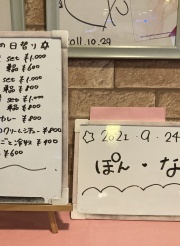 2011.10.29
の日替り
set ¥1.000
単品 ¥600
set ¥1.000
単品 ¥800
set ¥1.000
単品 ¥800
カレー ¥800
クリームシチュー ¥800
¥400
¥600
2021.9.24
ぽん・な